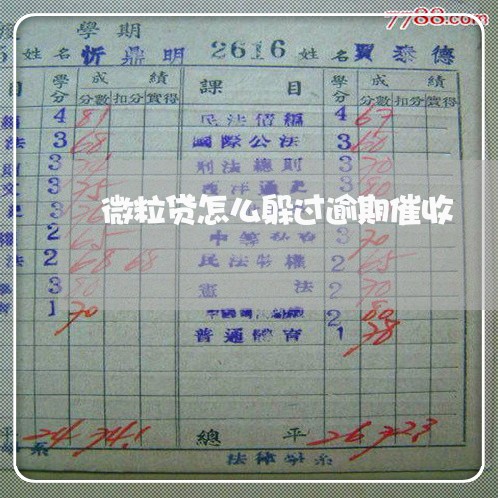 7788.com
學期
姓名 忻鼎明 2616 姓名 賈泰德
目 學分 成績 課目 學分 成績
分數 扣分 實得 分數 扣分 實得
4 81 民法債編 4 67
法 3 68 國際公法 3 60
3 刑法總則 3 70
文 3 75 西洋通史 3 80
微粒贷怎么躲过逾期催收
2 65 3 70
法 2 68 68 民法物權 2 65
3 80 憲法 2 70
1 70 2 80
普通體育 1 78
平 24 74.1 總平 26 72.3
系 法律學系